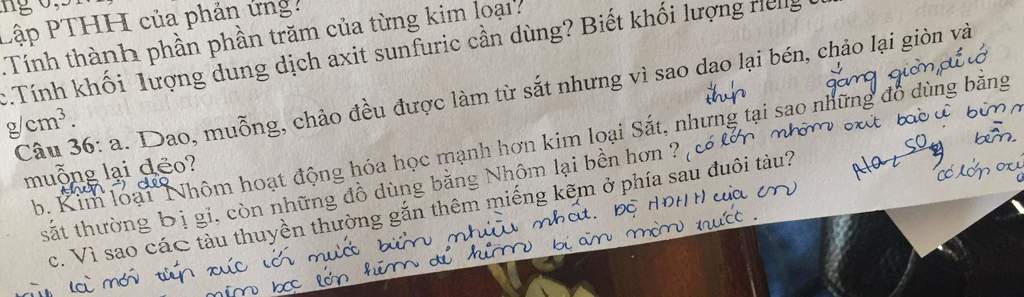 Lập PTHH của phản ứng?
.Tính thành phần phần trăm của từng kim loại?
c.Tính khối lượng dung dịch axit sunfuric cần dùng? Biết khối lượng riêng
g/cm³.
Câu 36: a. Dao, muỗng, chảo đều được làm từ sắt nhưng vì sao dao lại bén, chảo lại giòn và
thép gang giòn, dễ vỡ
muỗng lại dẻo?
thép dẻo
b. Kim loại Nhôm hoạt động hóa học mạnh hơn kim loại Sắt, nhưng tại sao những đồ dùng bằng
sắt thường bị gỉ, còn những đồ dùng bằng Nhôm lại bền hơn ? có lớp nhôm oxit bảo vệ
bền.
c. Vì sao các tàu thuyền thường gắn thêm miếng kẽm ở phía sau đuôi tàu?
có lớp
là nơi tiếp xúc với nước biển nhiều nhất. Độ HĐHH của
bọc lớp kẽm để bị ăn mòn trước.